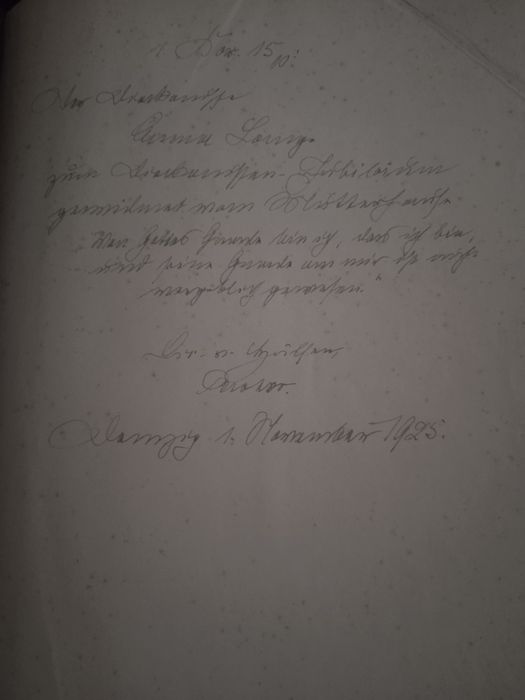 1. Kor. 15, 10.
Der Diakonisse
Anna Lange
zum Diakonissen-Jubiläum
gewidmet vom Mutterhause.
„Von Gottes Gnade bin ich, das ich bin,
und seine Gnade an mir ist nicht
vergeblich gewesen."
v.
Pfarrer.
Danzig 1. November 1925.